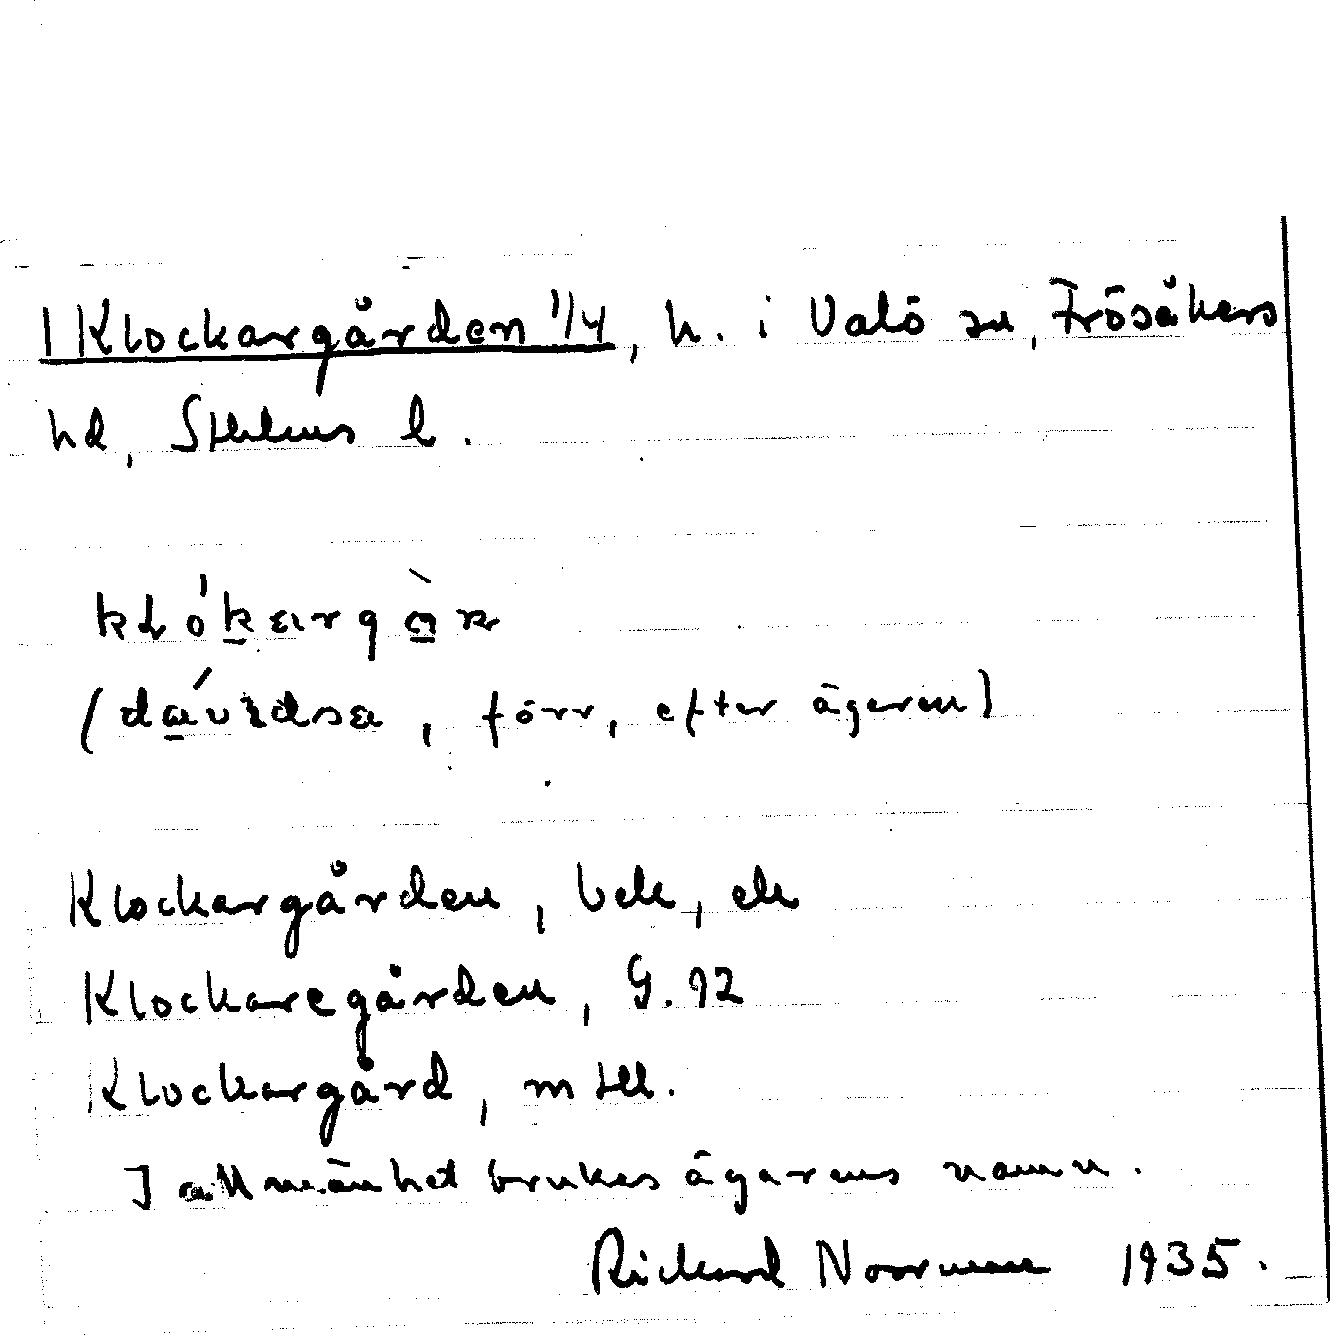 1 Klockargården 1/4, h. i Valö sn, Frösåkers
hd, Sthlms l.
klókargàɳ
(dávidsa, förr, efter ägaren)
Klockargården, bek, ek
Klockaregården, G. 92
Klockargård, mtll.
I allmänhet brukas ägarens namn.
Rickard Noorman 1935.